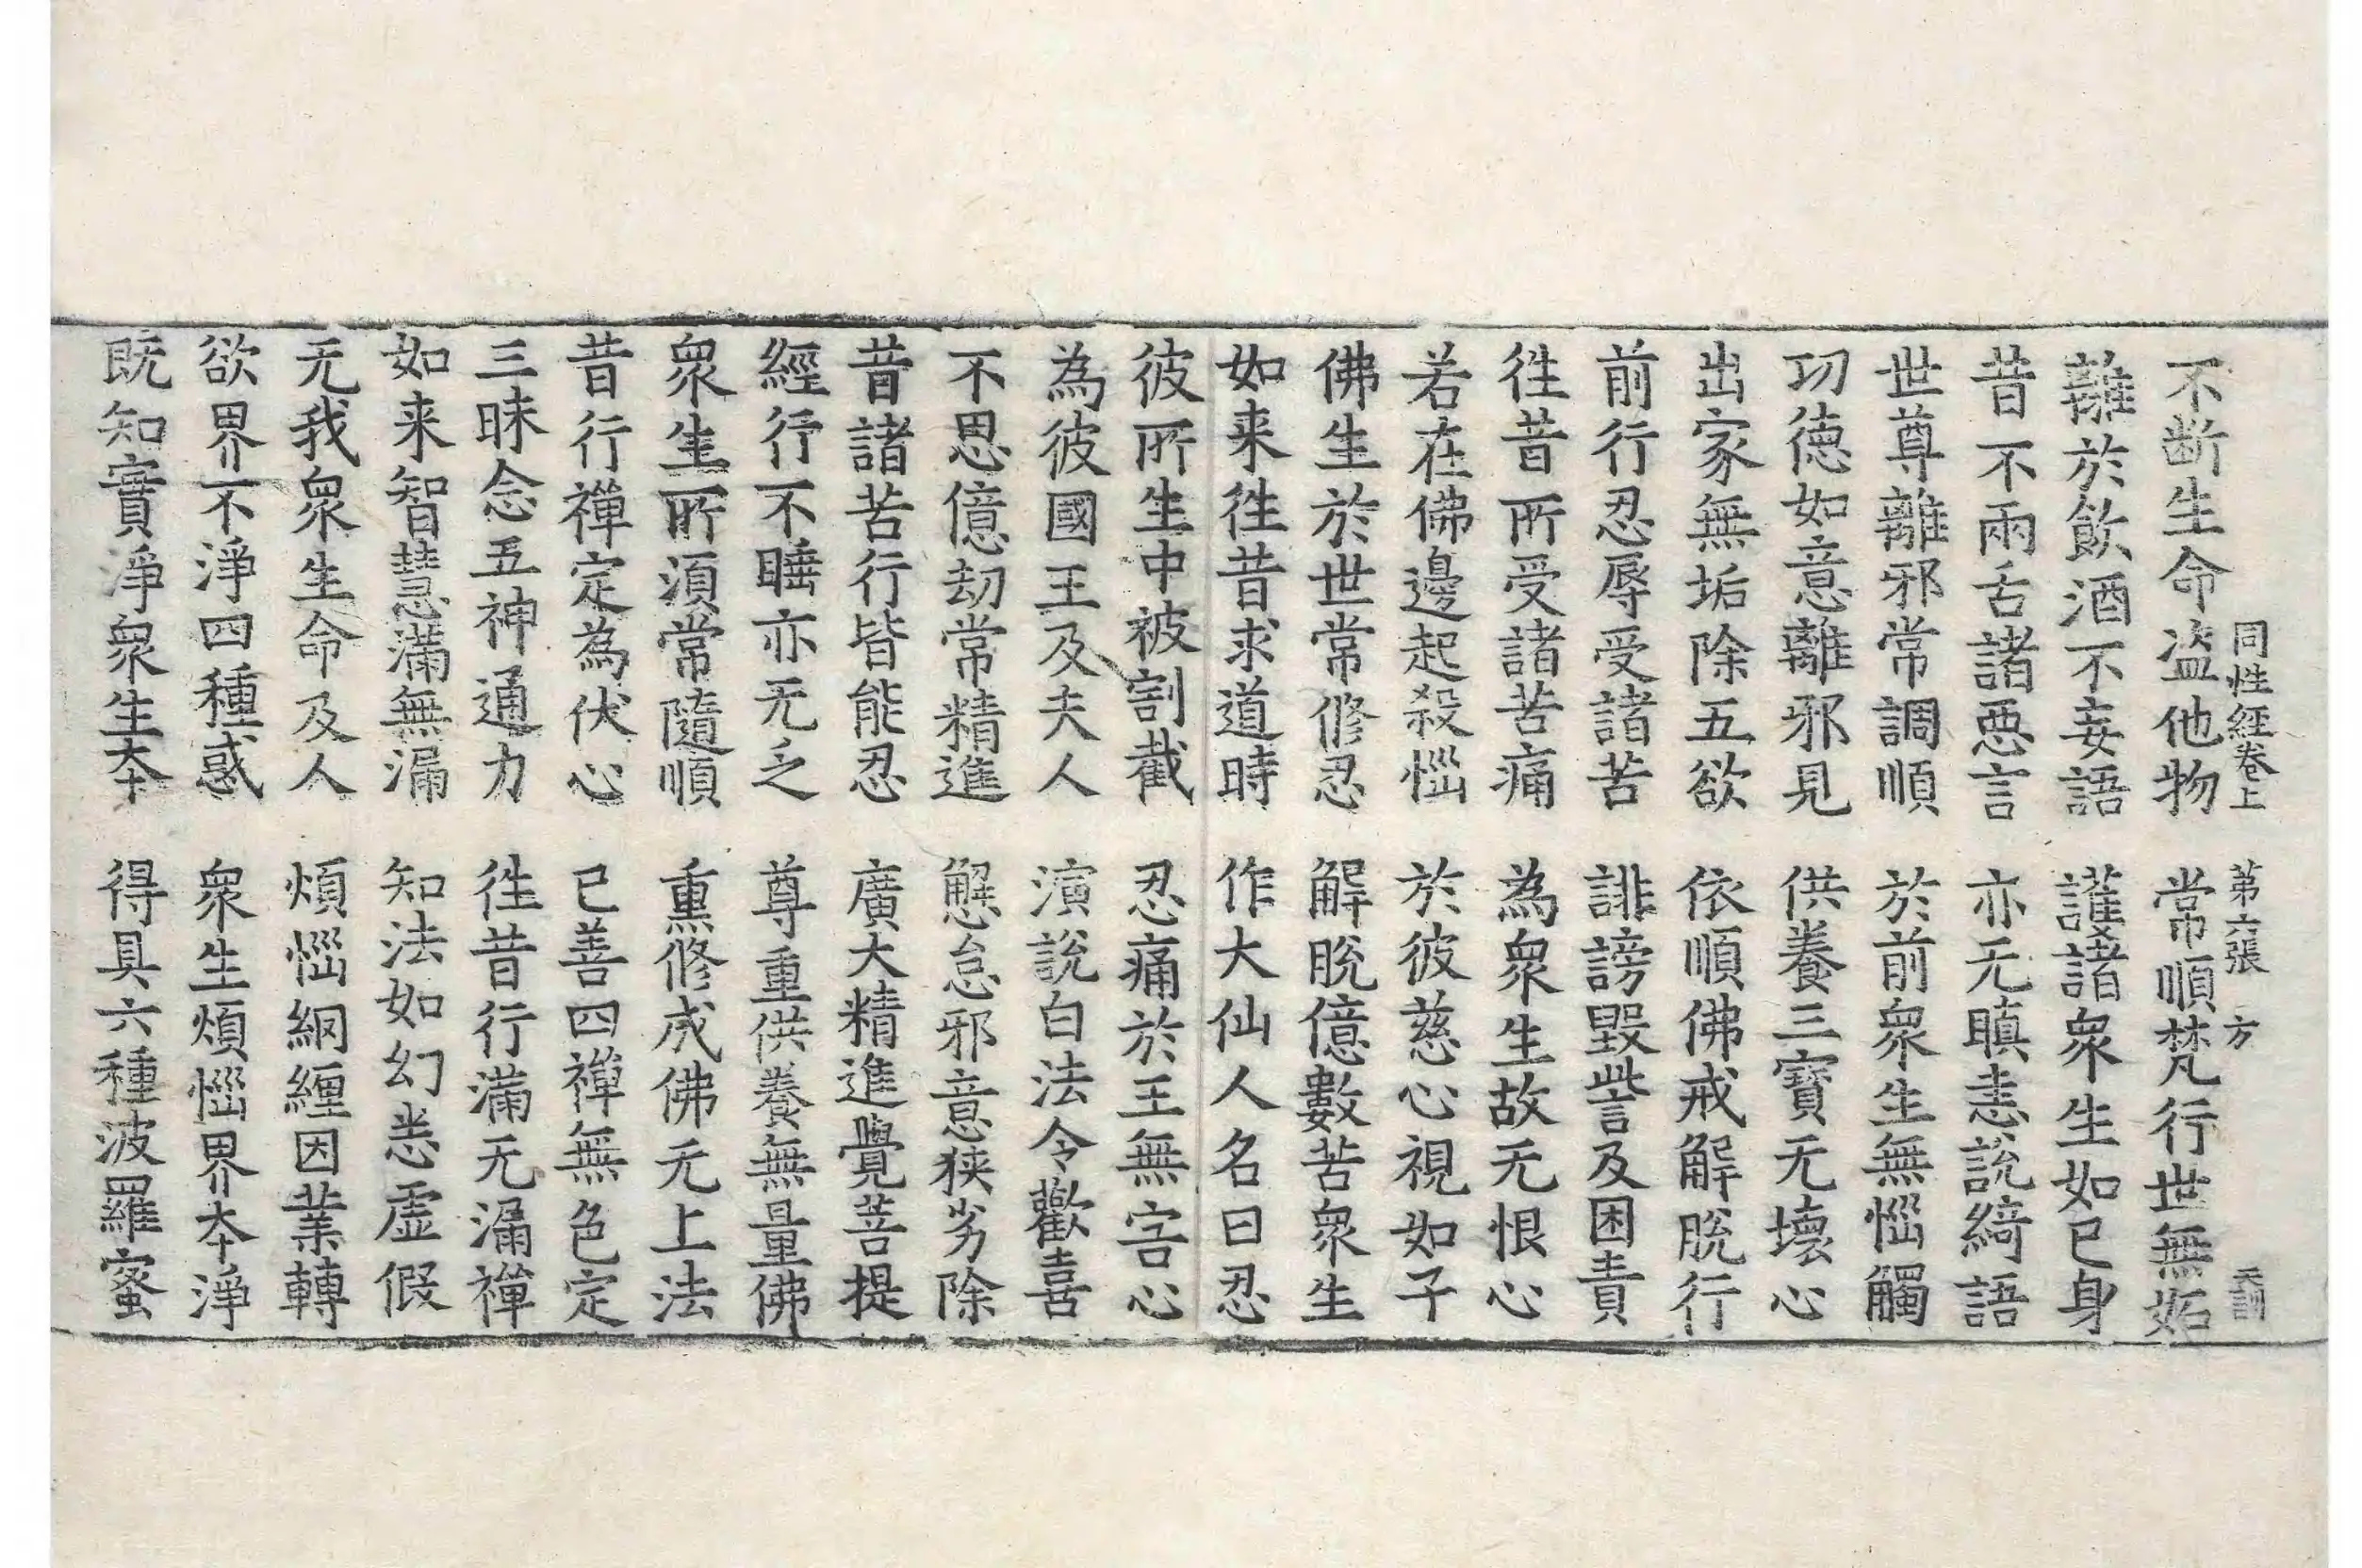 同性經卷上　第六張　方　天訓
不断生命盗他物　常順梵行世無妬
離於飲酒不妄語　護諸衆生如已身
昔不兩舌諸惡言　亦无瞋恚説綺語
世尊離邪常調順　於前衆生無惱觸
功德如意離邪見　供養三寳无壞心
出家無垢除五欲　依順佛戒解脫行
前行忍辱受諸苦　誹謗毀訾及困責
往昔所受諸苦痛　為衆生故无恨心
若在佛邊起殺惱　於彼慈心視如子
佛生於世常修忍　解脫億數苦衆生
如来往昔求道時　作大仙人名曰忍
彼所生中被割截　忍痛於王無害心
為彼國王及夫人　演説白法令歡喜
不思億劫常精進　懈怠邪意狹劣除
昔諸苦行皆能忍　廣大精進覺菩提
經行不睡亦无乏　尊重供養無量佛
衆生所須常隨順　熏修成佛无上法
昔行禪定為伏心　已善四禪無色定
三昧念五神通力　往昔行滿无漏禪
如来智慧滿無漏　知法如幻悉虛假
无我衆生命及人　煩惱網纏因業轉
欲界不淨四種惑　衆生煩惱界本淨
既知實淨衆生本　得具六種波羅蜜